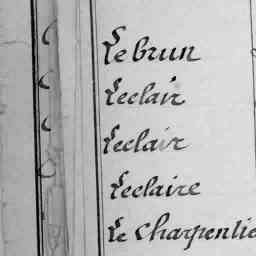 Lebrun
Leclair
Leclair
Leclaire
Le Charpentie